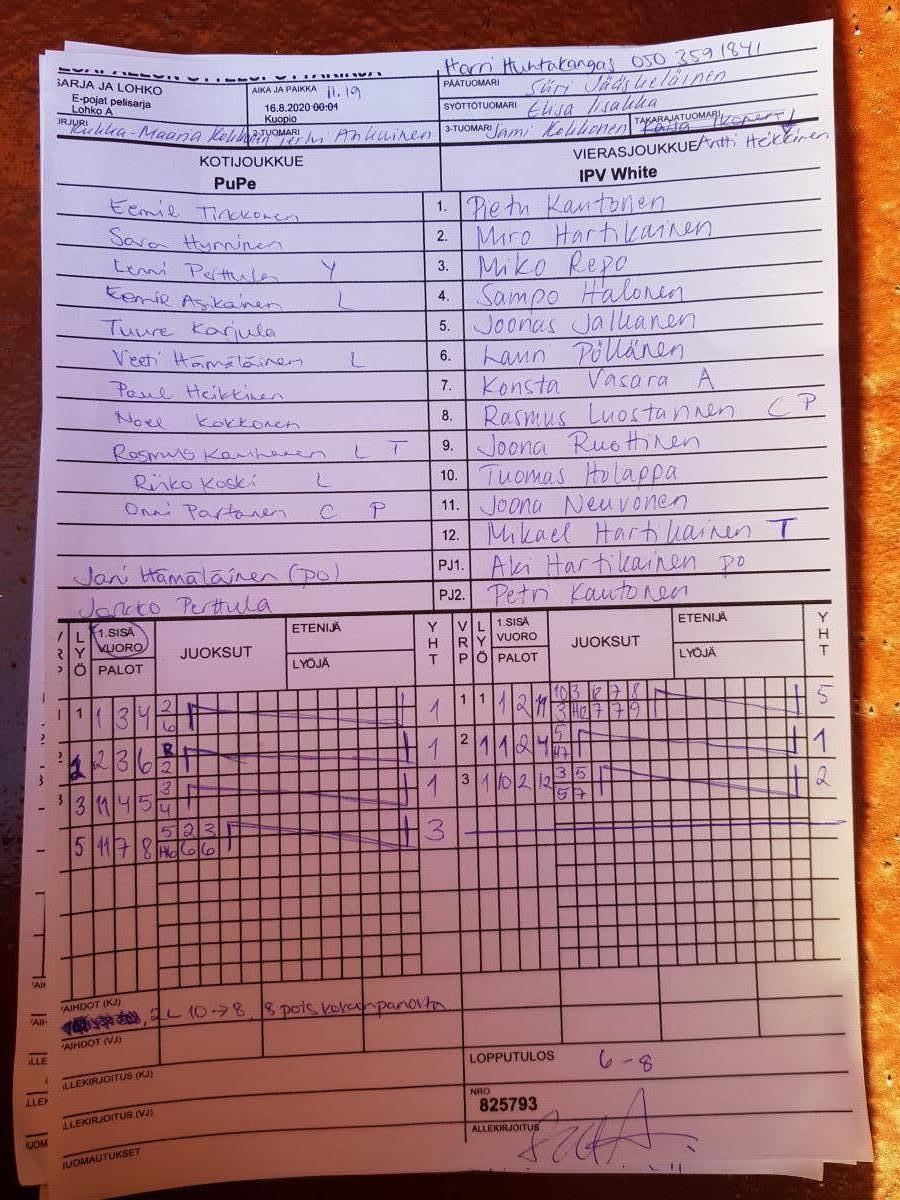 Harri Huhtakangas 050 3591841
SARJA JA LOHKO
E-pojat pelisarja
Lohko A
AIKA JA PAIKKA 11.19
16.8.2020 00:01
Kuopio
PÄÄTUOMARI Siiri Jääskeläinen
SYÖTTÖTUOMARI Elisa Iisakka
2-TUOMARI Terhi Ankainen
3-TUOMARI Sami Kokkonen
TAKARAJATUOMARI
Antti Heikkinen
KOTIJOUKKUE
PuPe
VIERASJOUKKUE
IPV White
Eemil Tirkkonen 1. Pietu Kautonen
Sara Hynninen 2. Miro Hartikainen
Lenni Perttula Y 3. Miko Repo
Eemil Asikainen L 4. Sampo Halonen
Tuure Karjula 5. Joonas Jalkanen
Veeti Hämäläinen L 6. Lauri Pöllänen
Paul Heikkinen 7. Konsta Vasara A
Noel Kokkonen 8. Rasmus Luostarinen C P
Rasmus Kauhanen L T 9. Joona Ruottinen
Riiko Koski L 10. Tuomas Holappa
Onni Partanen C P 11. Joona Neuvonen
12. Mikael Hartikainen T
Jani Hämäläinen (po) PJ1. Aki Hartikainen po
Jarkko Perttula PJ2. Petri Kautonen
LYÖ 1.SISÄ VUORO PALOT JUOKSUT ETENIJÄ LYÖJÄ YHT VRP LYÖ 1.SISÄ VUORO PALOT JUOKSUT ETENIJÄ LYÖJÄ YHT
1 1 3 4 2 1 1 1 1 2 11 10 3 12 7 8 5
6 3 7 7 9
2 3 6 1 2 1 1 2 4 5 1
2
3 11 4 5 3 1 3 1 10 2 12 3 5 2
4 5 7
5 11 7 8 5 2 3 3
6 6
AIHDOT (KJ)
2L 10→8, 8 pois kokoonpanosta
AIHDOT (VJ)
LLEKIRJOITUS (KJ)
LOPPUTULOS 6-8
LLEKIRJOITUS (VJ)
NRO
825793
ALLEKIRJOITUS
HUOMAUTUKSET